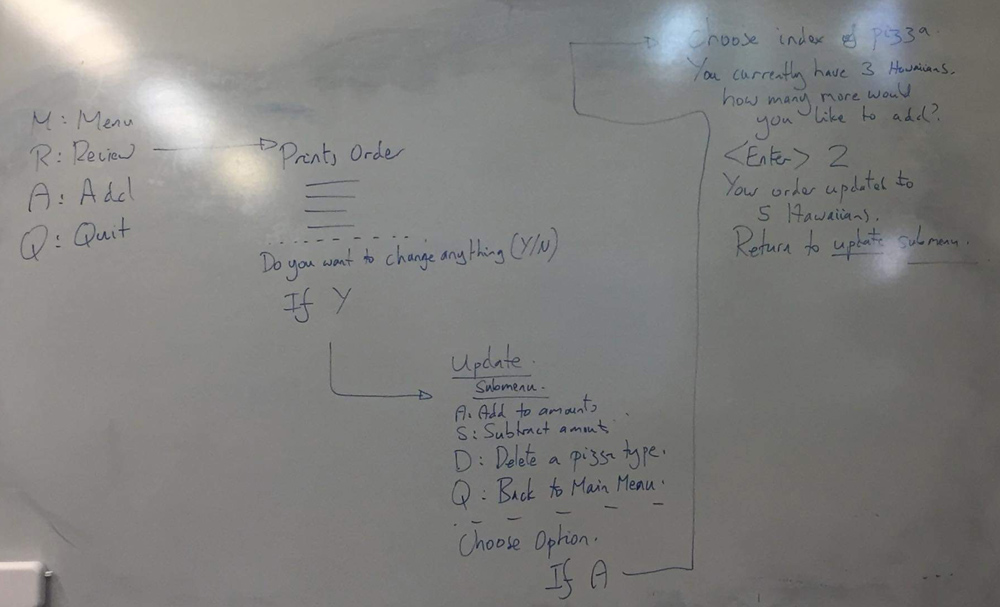 M: Menu
R: Review
A: Add
Q: Quit
Prints Order
Do you want to change anything (Y/N)
If Y
Update.
Submenu.
A: Add to amounts
S: Subtract amount
D: Delete a pizza type.
Q: Back to Main Menu.
Choose Option.
If A
Choose index of pizza.
You currently have 3 Hawaiians.
how many more would
you like to add?
<Enter> 2
Your order updates to
5 Hawaiians.
Return to update submenu.